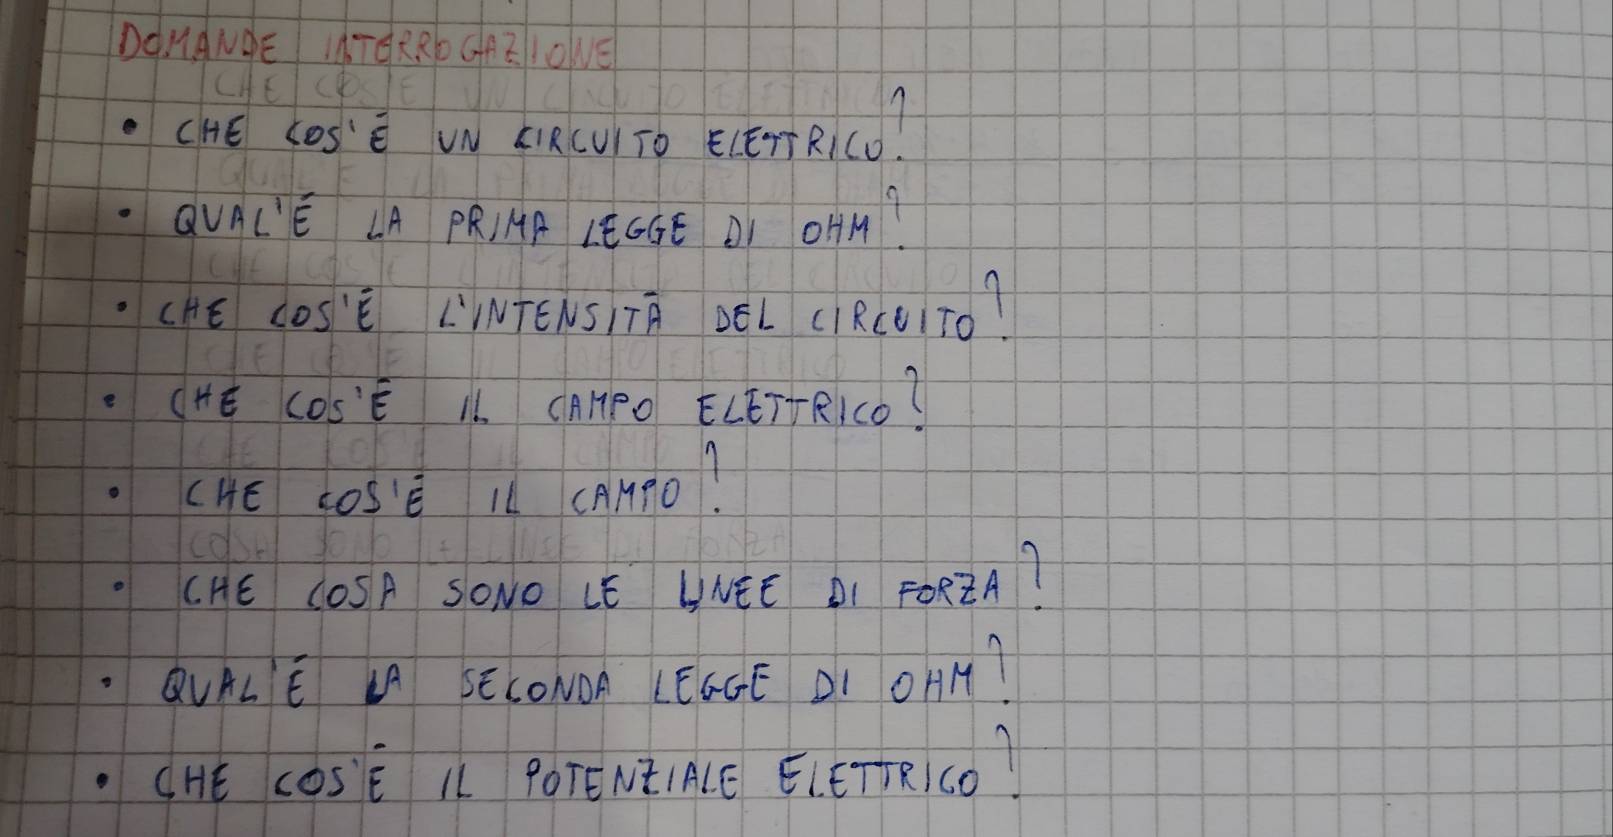 DOMANDE INTERROGAZIONE
• CHE COS'È UN CIRCUITO ELETTRICO?
• QUAL'È LA PRIMA LEGGE DI OHM?
• CHE COS'È L'INTENSITÀ DEL CIRCUITO?
• CHE COS'È IL CAMPO ELETTRICO?
• CHE COS'È IL CAMPO?
• CHE COSA SONO LE LINEE DI FORZA?
• QUAL'È LA SECONDA LEGGE DI OHM?
• CHE COS'È IL POTENZIALE ELETTRICO?